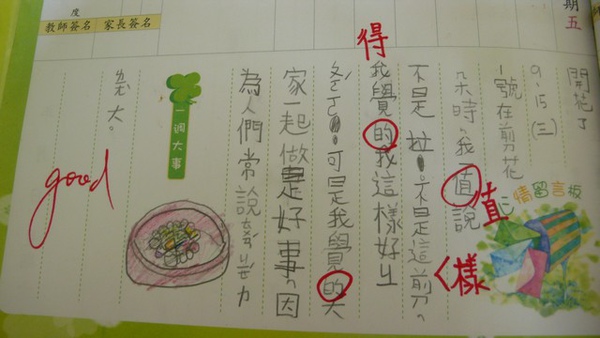 期五
度
教師簽名 家長簽名
開花了
9、15(三)
1號在剪花
朵時,我一直說
直
不是拉!不是這剪。
樣
得
我學見的我這樣好
可是我學見的大
家一起做是好事。因
為人們常說
力
大。
一週大事
情留言板
good